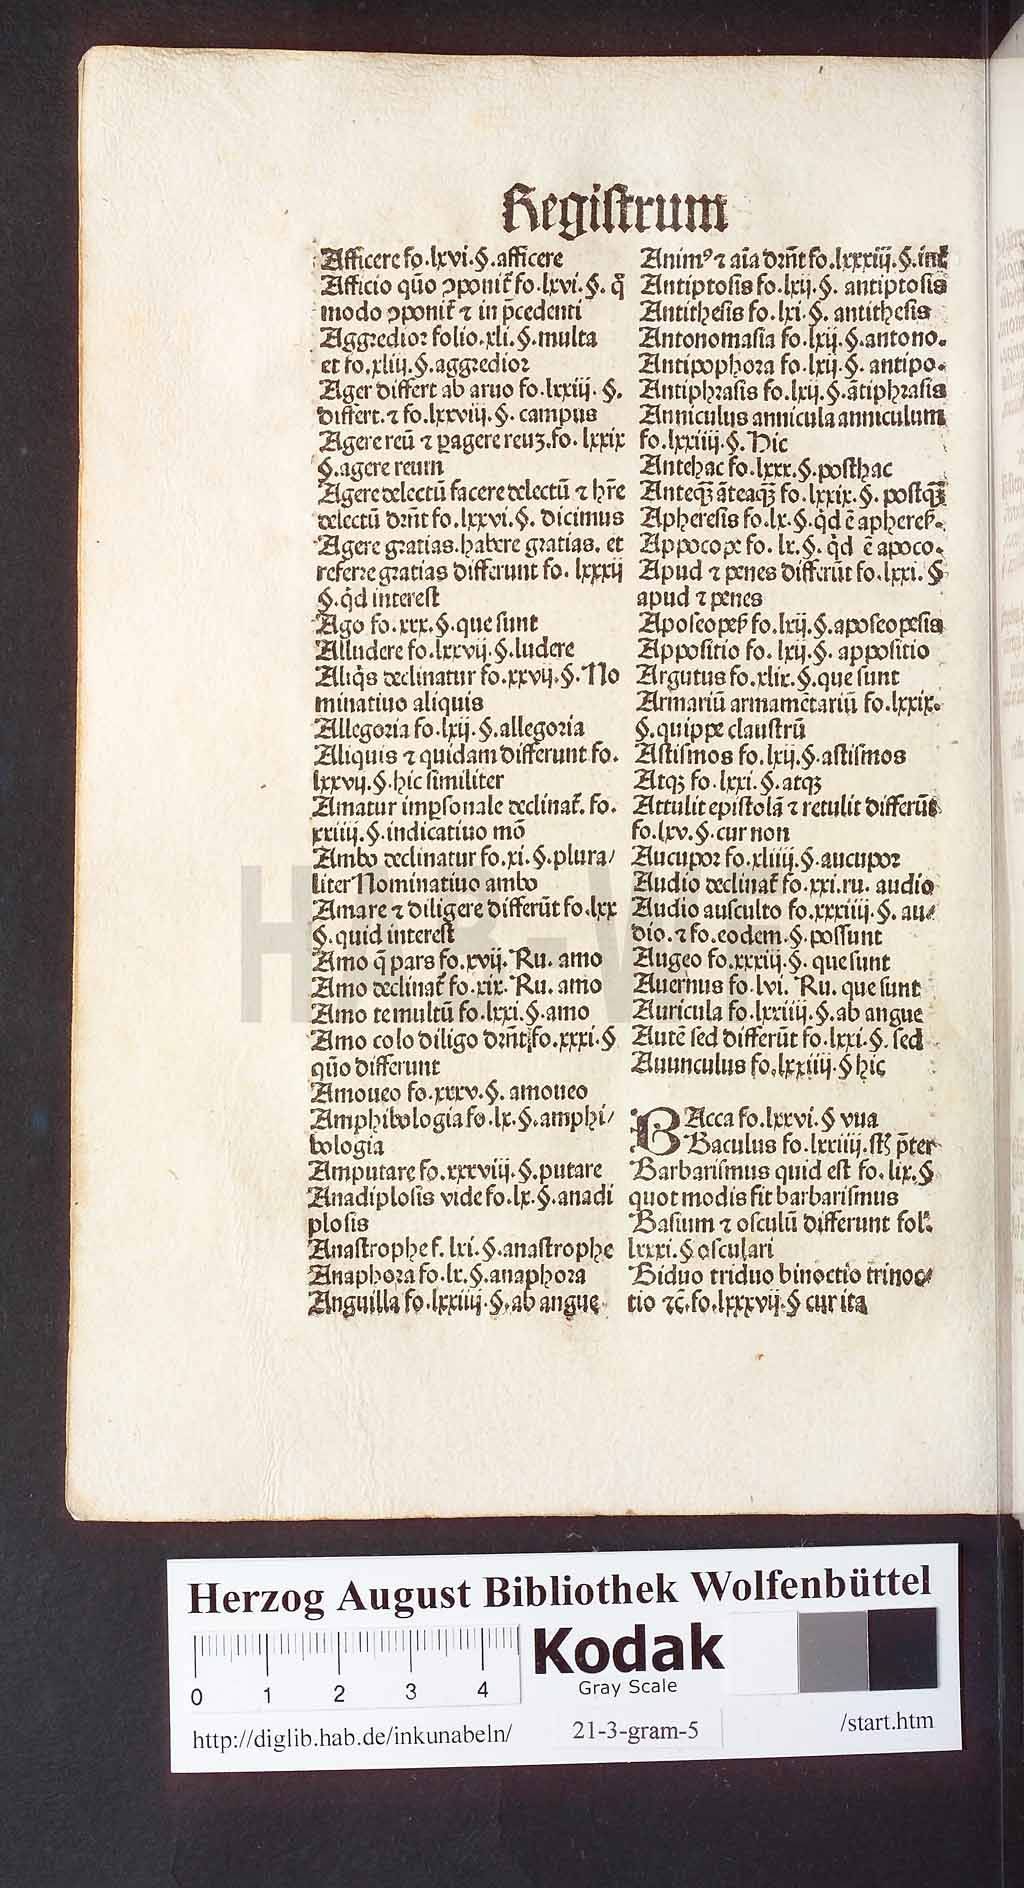 Registrum
Afficere fo.lxvi.§.afficere
Afficio quō ꝯponit᷑ fo.lxvi.§. q̊
modo ꝯponit᷑ ⁊ in p̄cedenti
Aggredior folio.xli.§.multa
et fo.xliij.§.aggredior
Ager differt ab aruo fo.lxxiij. §.
differt.⁊ fo.lxxviij.§. campus
Agere reū ⁊ ꝑagere reuʒ.fo. lxxix
§.agere reum
Agere delectū facere delectū ⁊ hr̄e
delectū dr̄nt fo.lxxvi.§. dicimus
Agere gratias.habere gratias. et
referre gratias differunt fo. lxxxij
§.q̇d interest
Ago fo.xxx.§.que sunt
Alludere fo.lxxvij.§.ludere
Aliq̇s declinatur fo.xxvij.§. No
minatiuo aliquis
Allegoria fo.lxij.§.allegoria
Aliquis ⁊ quidam differunt fo.
lxxvij.§.hic similiter
Amatur imꝑsonale declinat᷑. fo.
xxiiij.§.indicatiuo mō
Ambo declinatur fo.xi.§.plura/
liter Nominatiuo ambo
Amare ⁊ diligere differūt fo.lxx
§.quid interest
Amo q̄ pars fo.xvij. Ru. amo
Amo declinat᷑ fo.xix. Ru. amo
Amo te multū fo.lxxi.§.amo
Amo colo diligo dr̄nt fo.xxxi.§
quō differunt
Amoueo fo.xxxv.§. amoueo
Amphibologia fo.lx.§.amphi/
bologia
Amputare fo.xxxviij.§.putare
Anadiplosis vide fo.lx.§.anadi
plosis
Anastrophe f. lxi.§.anastrophe
Anaphora fo.lx.§.anaphora
Anguilla fo.lxxiiij.§.ab angue
Animꝰ ⁊ aīa dr̄nt fo.lxxxiij.§.
Antiptosis fo.lxij.§. antiptosis
Antithesis fo.lxi.§. antithesis
Antonomasia fo.lxij.§.antono.
Antipophora fo.lxij.§. antipo.
Antiphrasis fo.lxij.§.ātiphrasis
Anniculus annicula anniculum
fo.lxxiiij.§. Hic
Antehac fo.lxxx.§.posthac
Anteqʒ̄ āteaqʒ̄ fo.lxxix.§. postqʒ̄
Apheresis fo.lx.§.q̇d ē
Appocope fo. lx.§. q̇d ē apoco.
Apud ⁊ penes differūt fo.lxxi. §
apud ⁊ penes
Aposeopes᷑ fo.lxij.§.aposeopesis
Appositio fo. lxij.§. appositio
Argutus fo.xlix.§.que sunt
Armariū armamētariū fo.lxxix.
§.quippe claustrū
Astismos fo.lxij.§.astismos
Atqʒ fo.lxxi.§.atqʒ
Attulit epistolā ⁊ retulit differūt
fo.lxv.§.cur non
Aucupor fo.xliiij.§.aucupor
Audio declinat᷑ fo.xxi.ru. audio
Audio ausculto fo.xxxiiij.§. au/
dio.⁊ fo.eodem.§.possunt
Augeo fo.xxxiij.§. que sunt
Auernus fo.lvi. Ru. que sunt
Auricula fo.lxxiiij.§.ab angue
Autē sed differūt fo.lxxi.§. sed
Auunculus fo.lxxiiij.§ hic
BAcca fo.lxxvi.§ vua
Baculus fo.lxxiiij. p̄ter
Barbarismus quid est fo. lix.§
quot modis fit barbarismus
Basium ⁊ osculū differunt fol.
lxxxi.§ osculari
Biduo triduo binoctio trinoc/
tio ⁊c̄.fo.lxxxvij.§ cur ita
HAB-W
Herzog August Bibliothek Wolfenbüttel
0 1 2 3 4
Kodak
Gray Scale
http://diglib.hab.de/inkunabeln/
21-3-gram-5
/start.htm